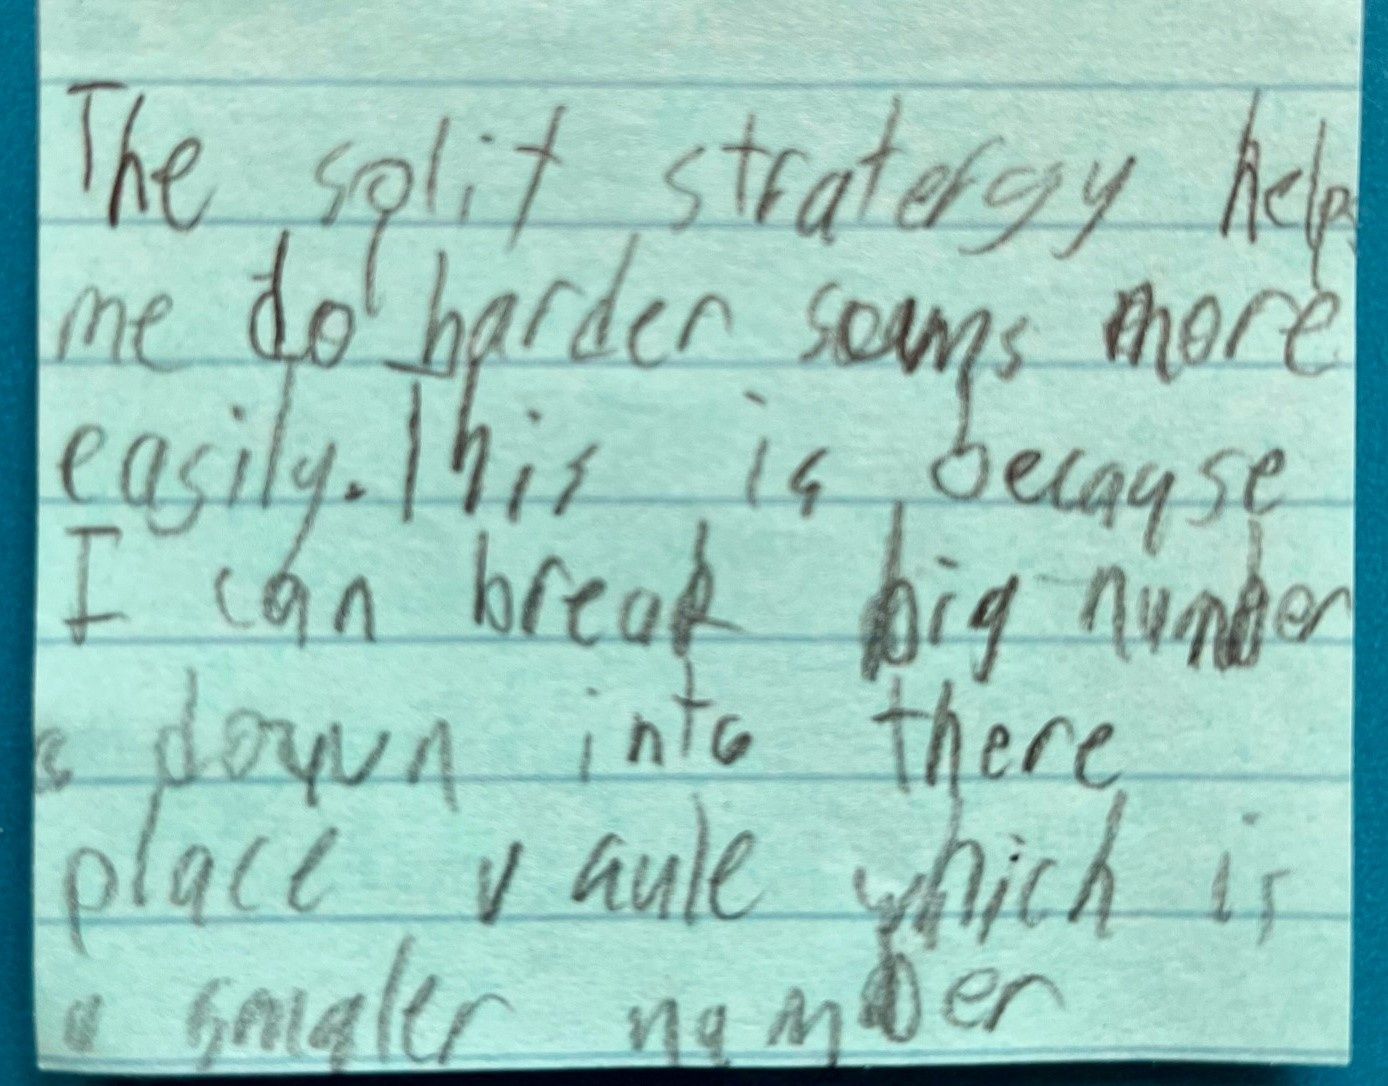 The split stratergy helps
me do harder soums more
easily. This is because
I can break big number
s down into there
place vaule which is
a smaler number